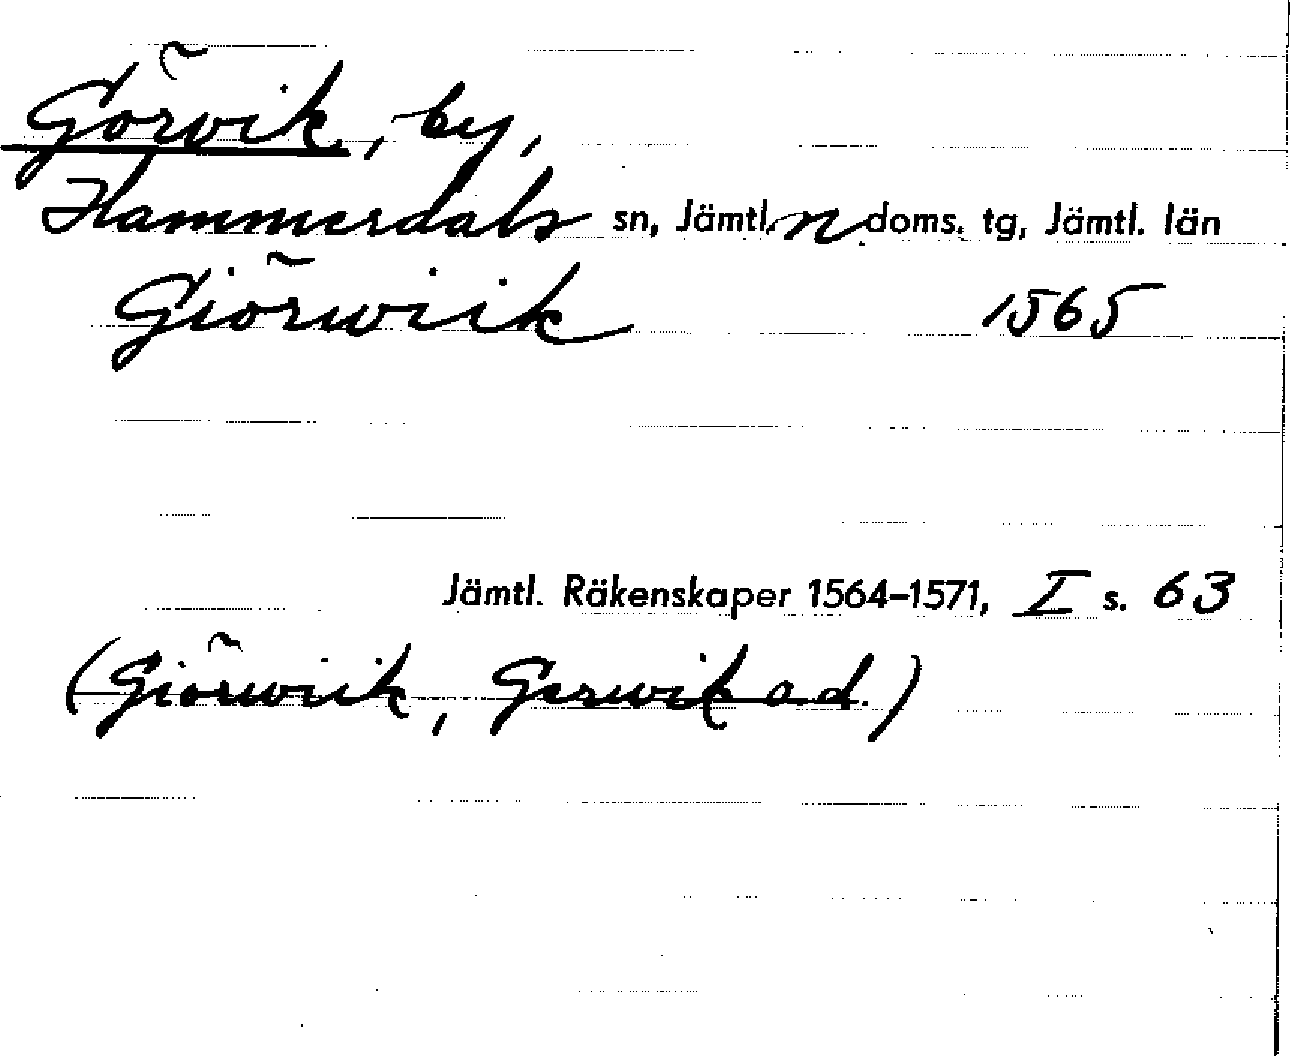 Görvik, by,
Hammerdals sn, Jämtl. n doms. tg, Jämtl. län
Giörwiik 1565
Jämtl. Räkenskaper 1564–1571, I s. 63
(Giörwiik, Gerwik a.d.)